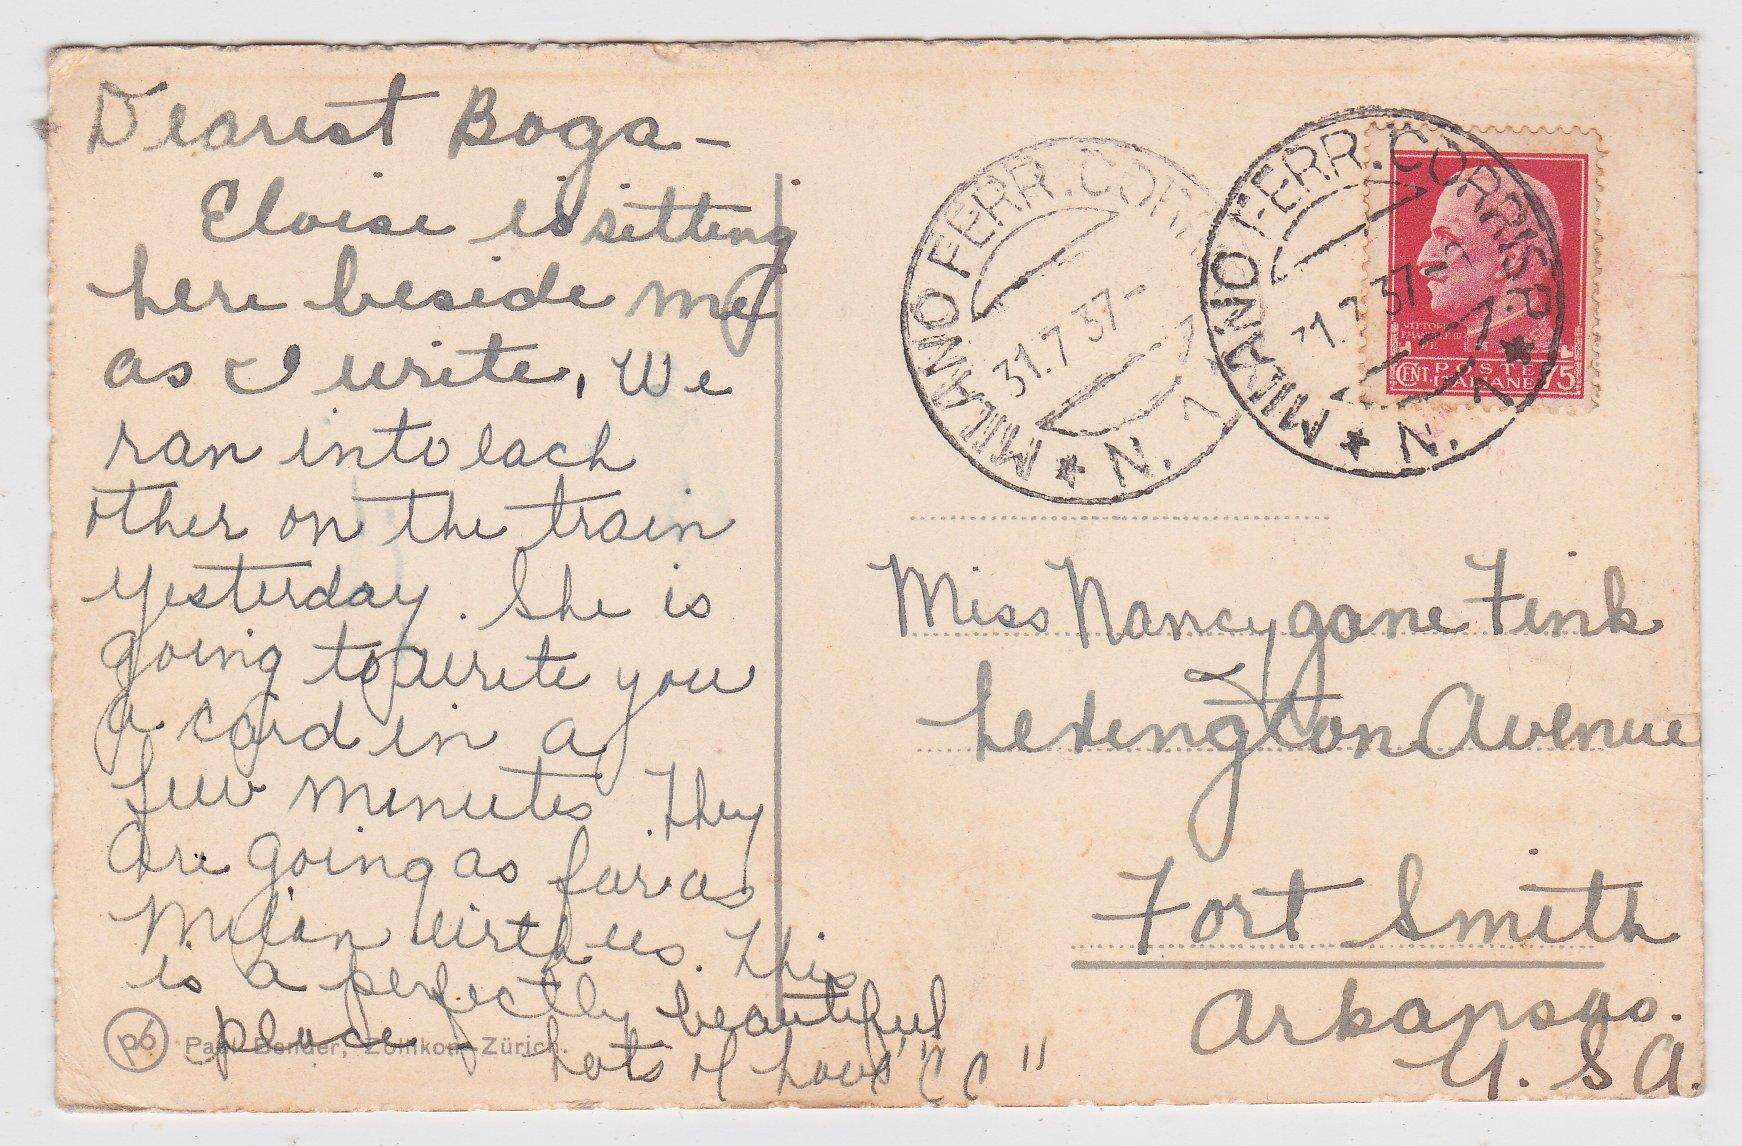 Dearest Boga -
Eloise is sitting
here beside me
as I write, We
ran into each
other on the train
yesterday. She is
going to write you
a card in a
few minutes They
are going as far as
Milan with us. This
is a perfectly beautiful
place
Lots of Love "CC"
p6
Paul Bender, Zollikon-Zürich.
MILANO FERR. CORRISP. N. 1
31.7.37-
MILANO FERR. CORRISP. N. 1
31.7.37-
CENT. POSTE 75
ITALIANE
Miss Nancy Jane Fink
Lexington Avenue
Fort Smith
Arkansas.
U.S.A.